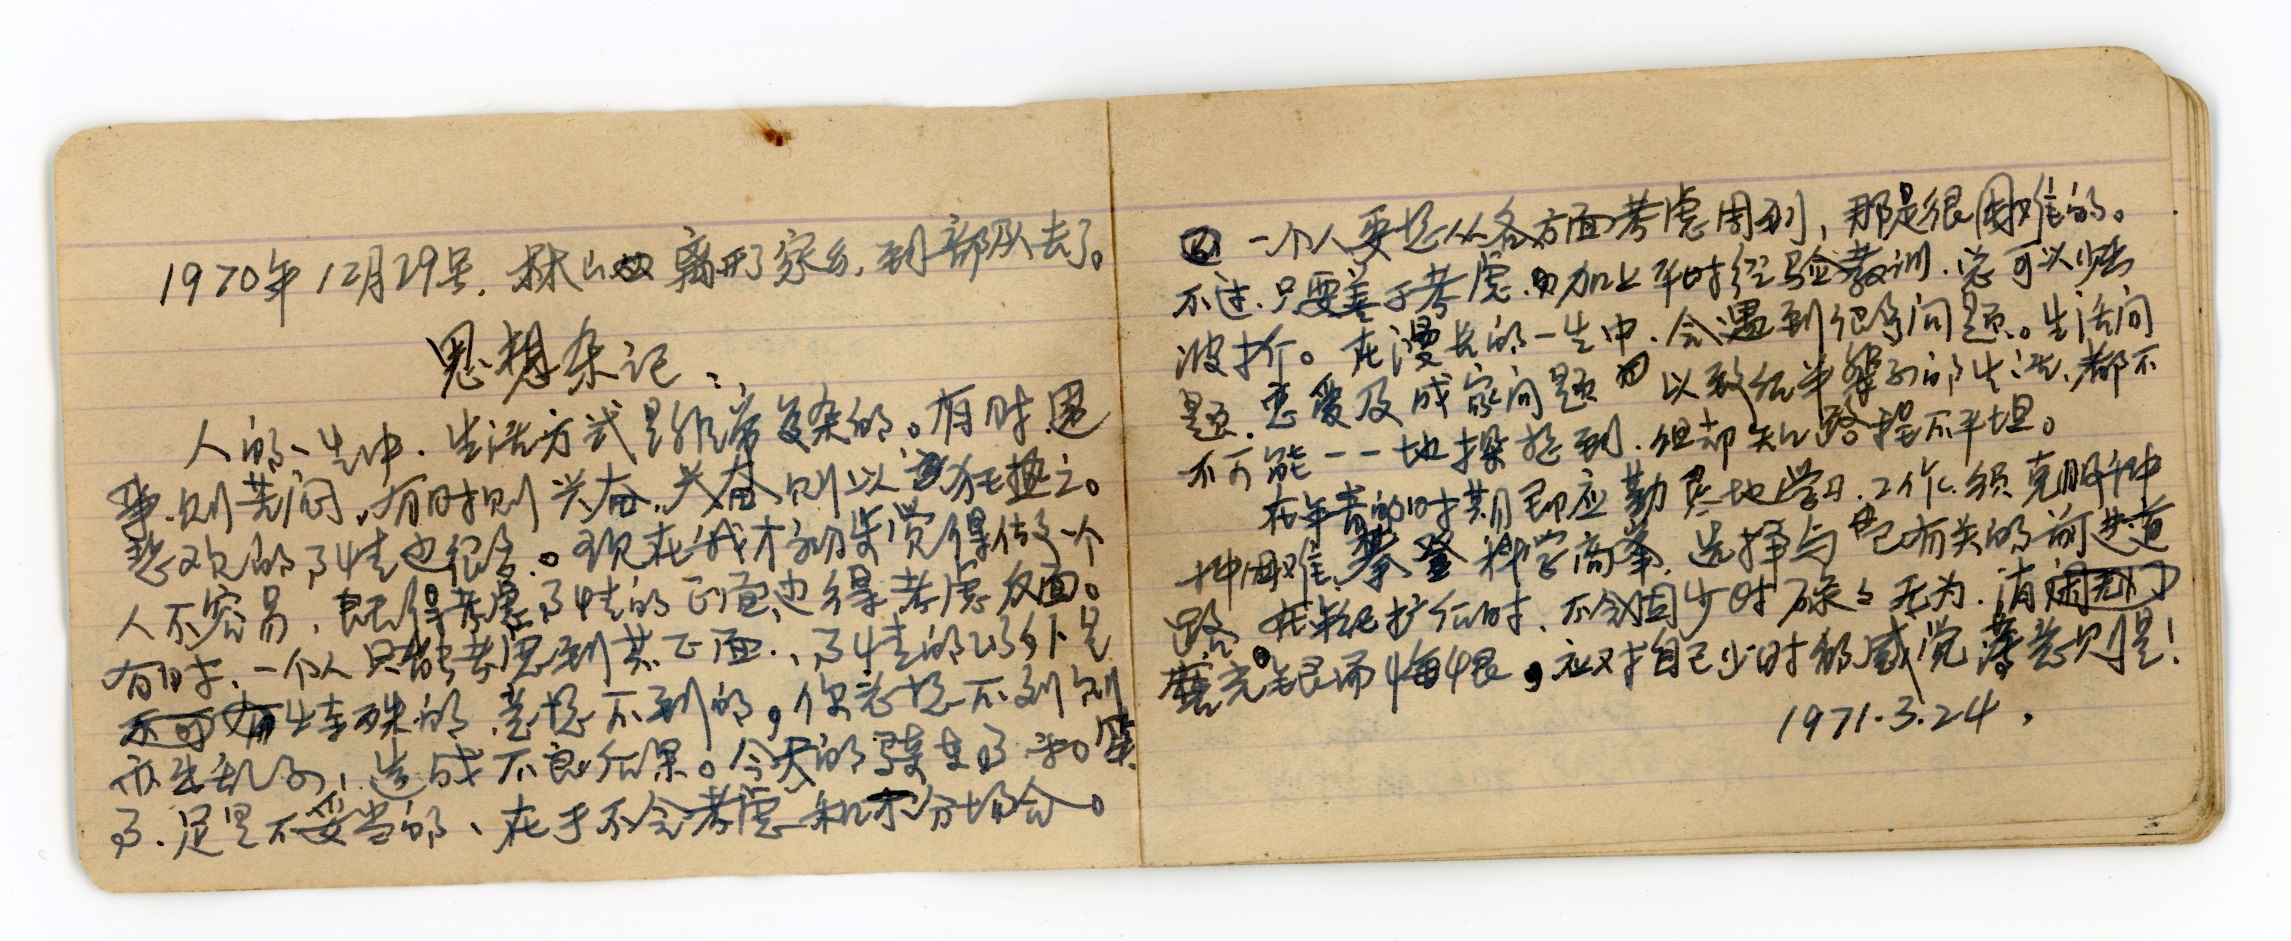 1970年12月29号.林山 离开了家乡.到部队去了。
思想杂记:
人的一生中.生活方式是非常复杂的。有时遇
事.则苦闷.有时则兴奋.兴奋则以 狂热之。
悲欢的事情也很多。现在我才初步觉得做一个
人不容易,既得考虑事情的正面也得考虑反面。
有时.一个人只能考虑到其正面.事情的以外是
特殊的意想不到的,你意想不到则
亦生乱子,造成不良后果。今天的骑车
了.是不妥当的、在于不会考虑和不分场合。
一个人要想从各方面考虑周到,那是很困难的。
不过.只要善于考虑.加上平时经验教训.总可以少些
波折。在漫长的一生中.会遇到很多问题。生活问
题.恋爱及成家问题 以致后半辈子的生活,都不
不可能一一地探想到.但却知路程不平坦。
在年青的时期即应勤恳地学习.工作.须克服种
种困难.攀登科学高峯.选择与自己有关的前进道
路。在年老扩后时.不会因少时碌々无为.消
磨光阴而悔恨,应对自己少时的感觉 则是!
1971.3.24.